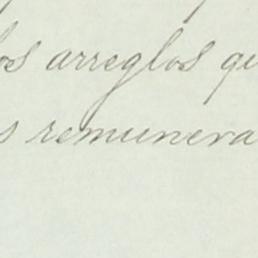 los arreglos qu
s remunera